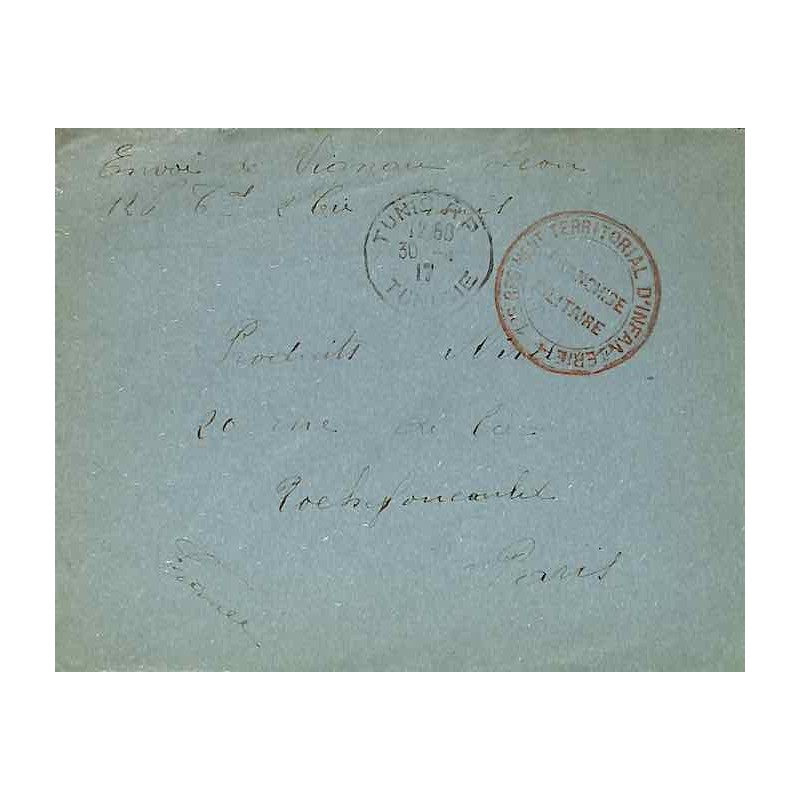 Envoi de Vignau Léon
125 Tal 2 Cie Tunis
TUNIS R.P
30
17
TUNISIE
REGIMENT TERRITORIAL D'INFANTERIE
MILITAIRE
Produits
20 rue de la
Rochefoucauld
Paris